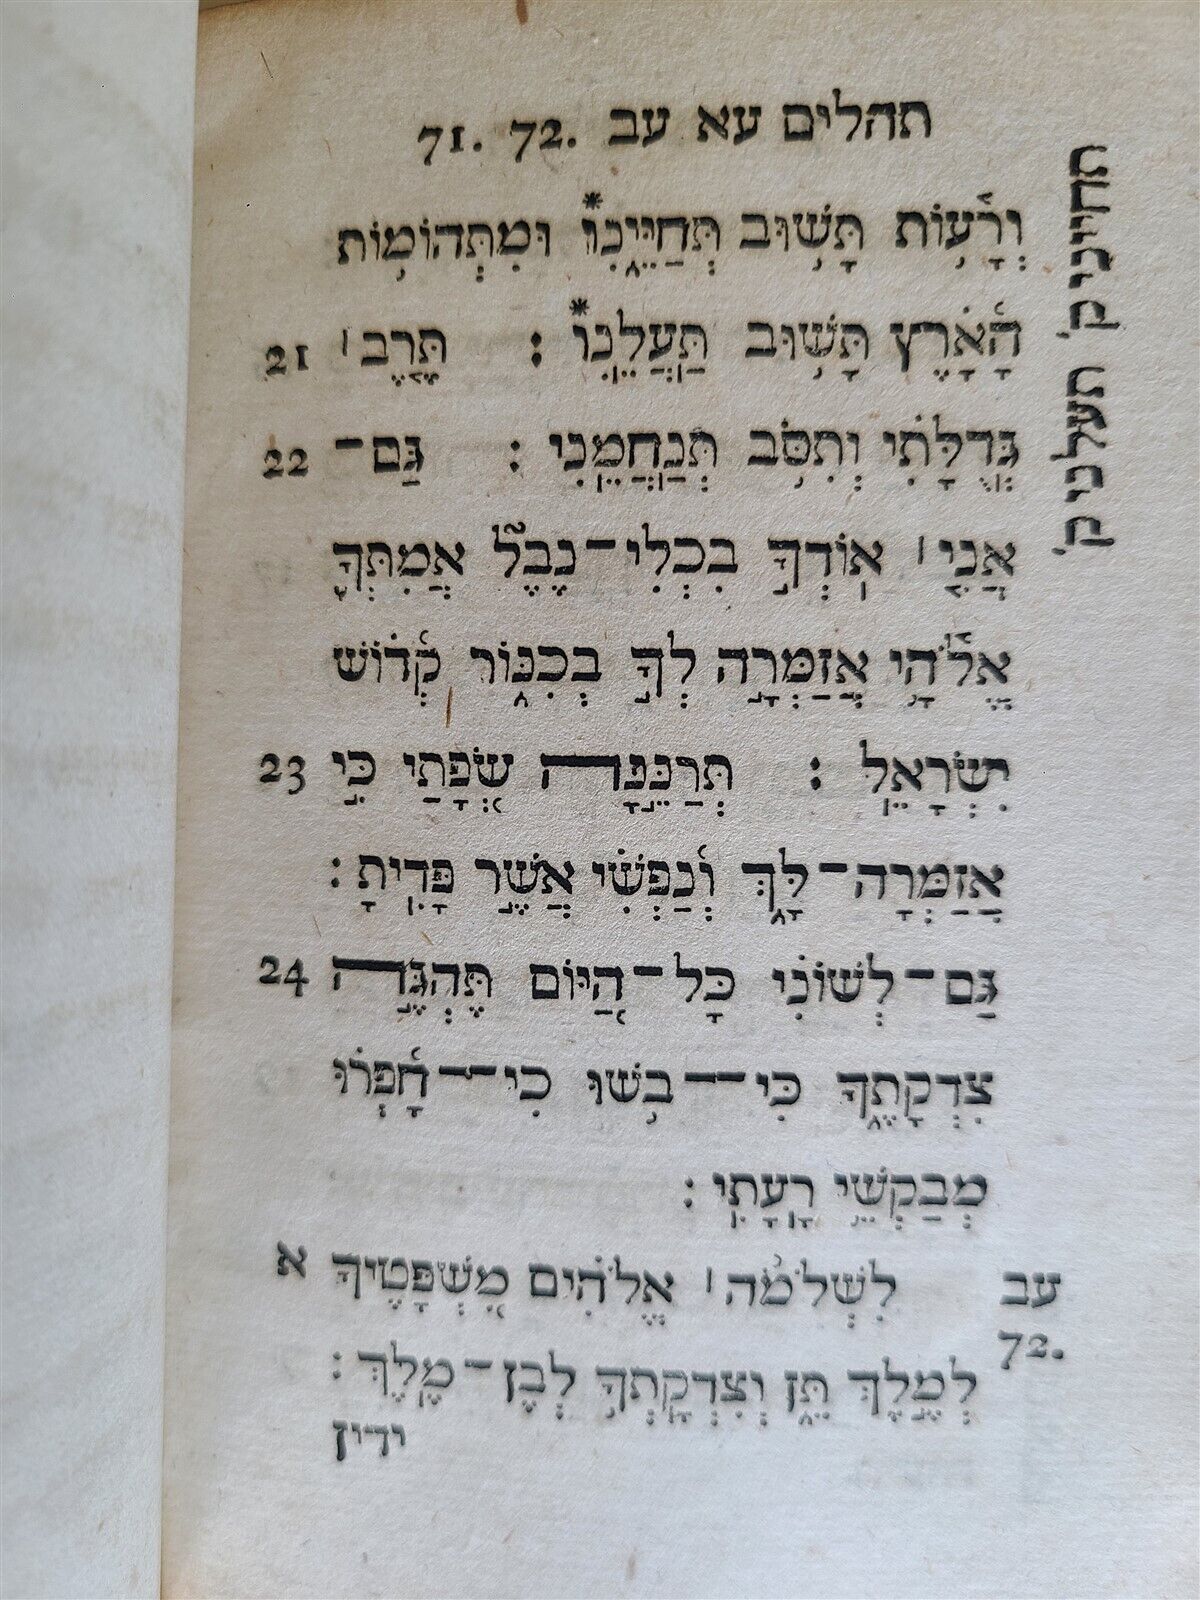 תהלים עא עב 71. 72.
וְרָע֥וֹת תָּשׁ֥וּב תְּחַיֵּ֑ינִוּ* וּֽמִתְּהוֹמ֥וֹת
הָ֝אָ֗רֶץ תָּשׁ֥וּב תַּֽעֲלֵֽנִוּ* : תֶּ֤רֶב ׀ 21
גְּֽדֻלָּתִ֗י וְתִסֹּ֥ב תְּנַֽחֲמֵֽנִי : גַּם־ 22
אֲנִ֤י ׀ אֽוֹדְךָ֣ בִכְלִי־נֶבֶל֮ אֲמִתְּךָ֪
אֱלֹ֫הָ֥י אֲזַמְּרָ֣ה לְךָ֣ בְכִנּ֑וֹר קְ֝ד֗וֹשׁ
יִשְׂרָאֵֽל : תְּרַנֵּ֣נָּה שְׂ֭פָתַי כִּ֣י 23
אֲזַמְּרָה־לָּ֑ךְ וְ֝נַפְשִׁ֗י אֲשֶׁ֣ר פָּדִֽיתָ :
גַּם־לְשׁוֹנִ֗י כָּל־הַ֭יּוֹם תֶּהְגֶּ֣ה 24
צִדְקָתֶ֑ךָ כִּי־בֹ֥שׁוּ כִֽי־חָ֝פְר֗וּ
מְבַקְשֵׁ֥י רָֽעָתִֽי :
עב לִשְׁלֹמֹ֨ה ׀ אֱֽלֹהִ֗ים מִ֭שְׁפָּטֶיךָ א
72. לְמֶ֣לֶךְ תֵּ֑ן וְצִדְקָֽתְךָ֥ לְבֶן־מֶֽלֶךְ :
ידין
תחייני ק'
תעלני ק'